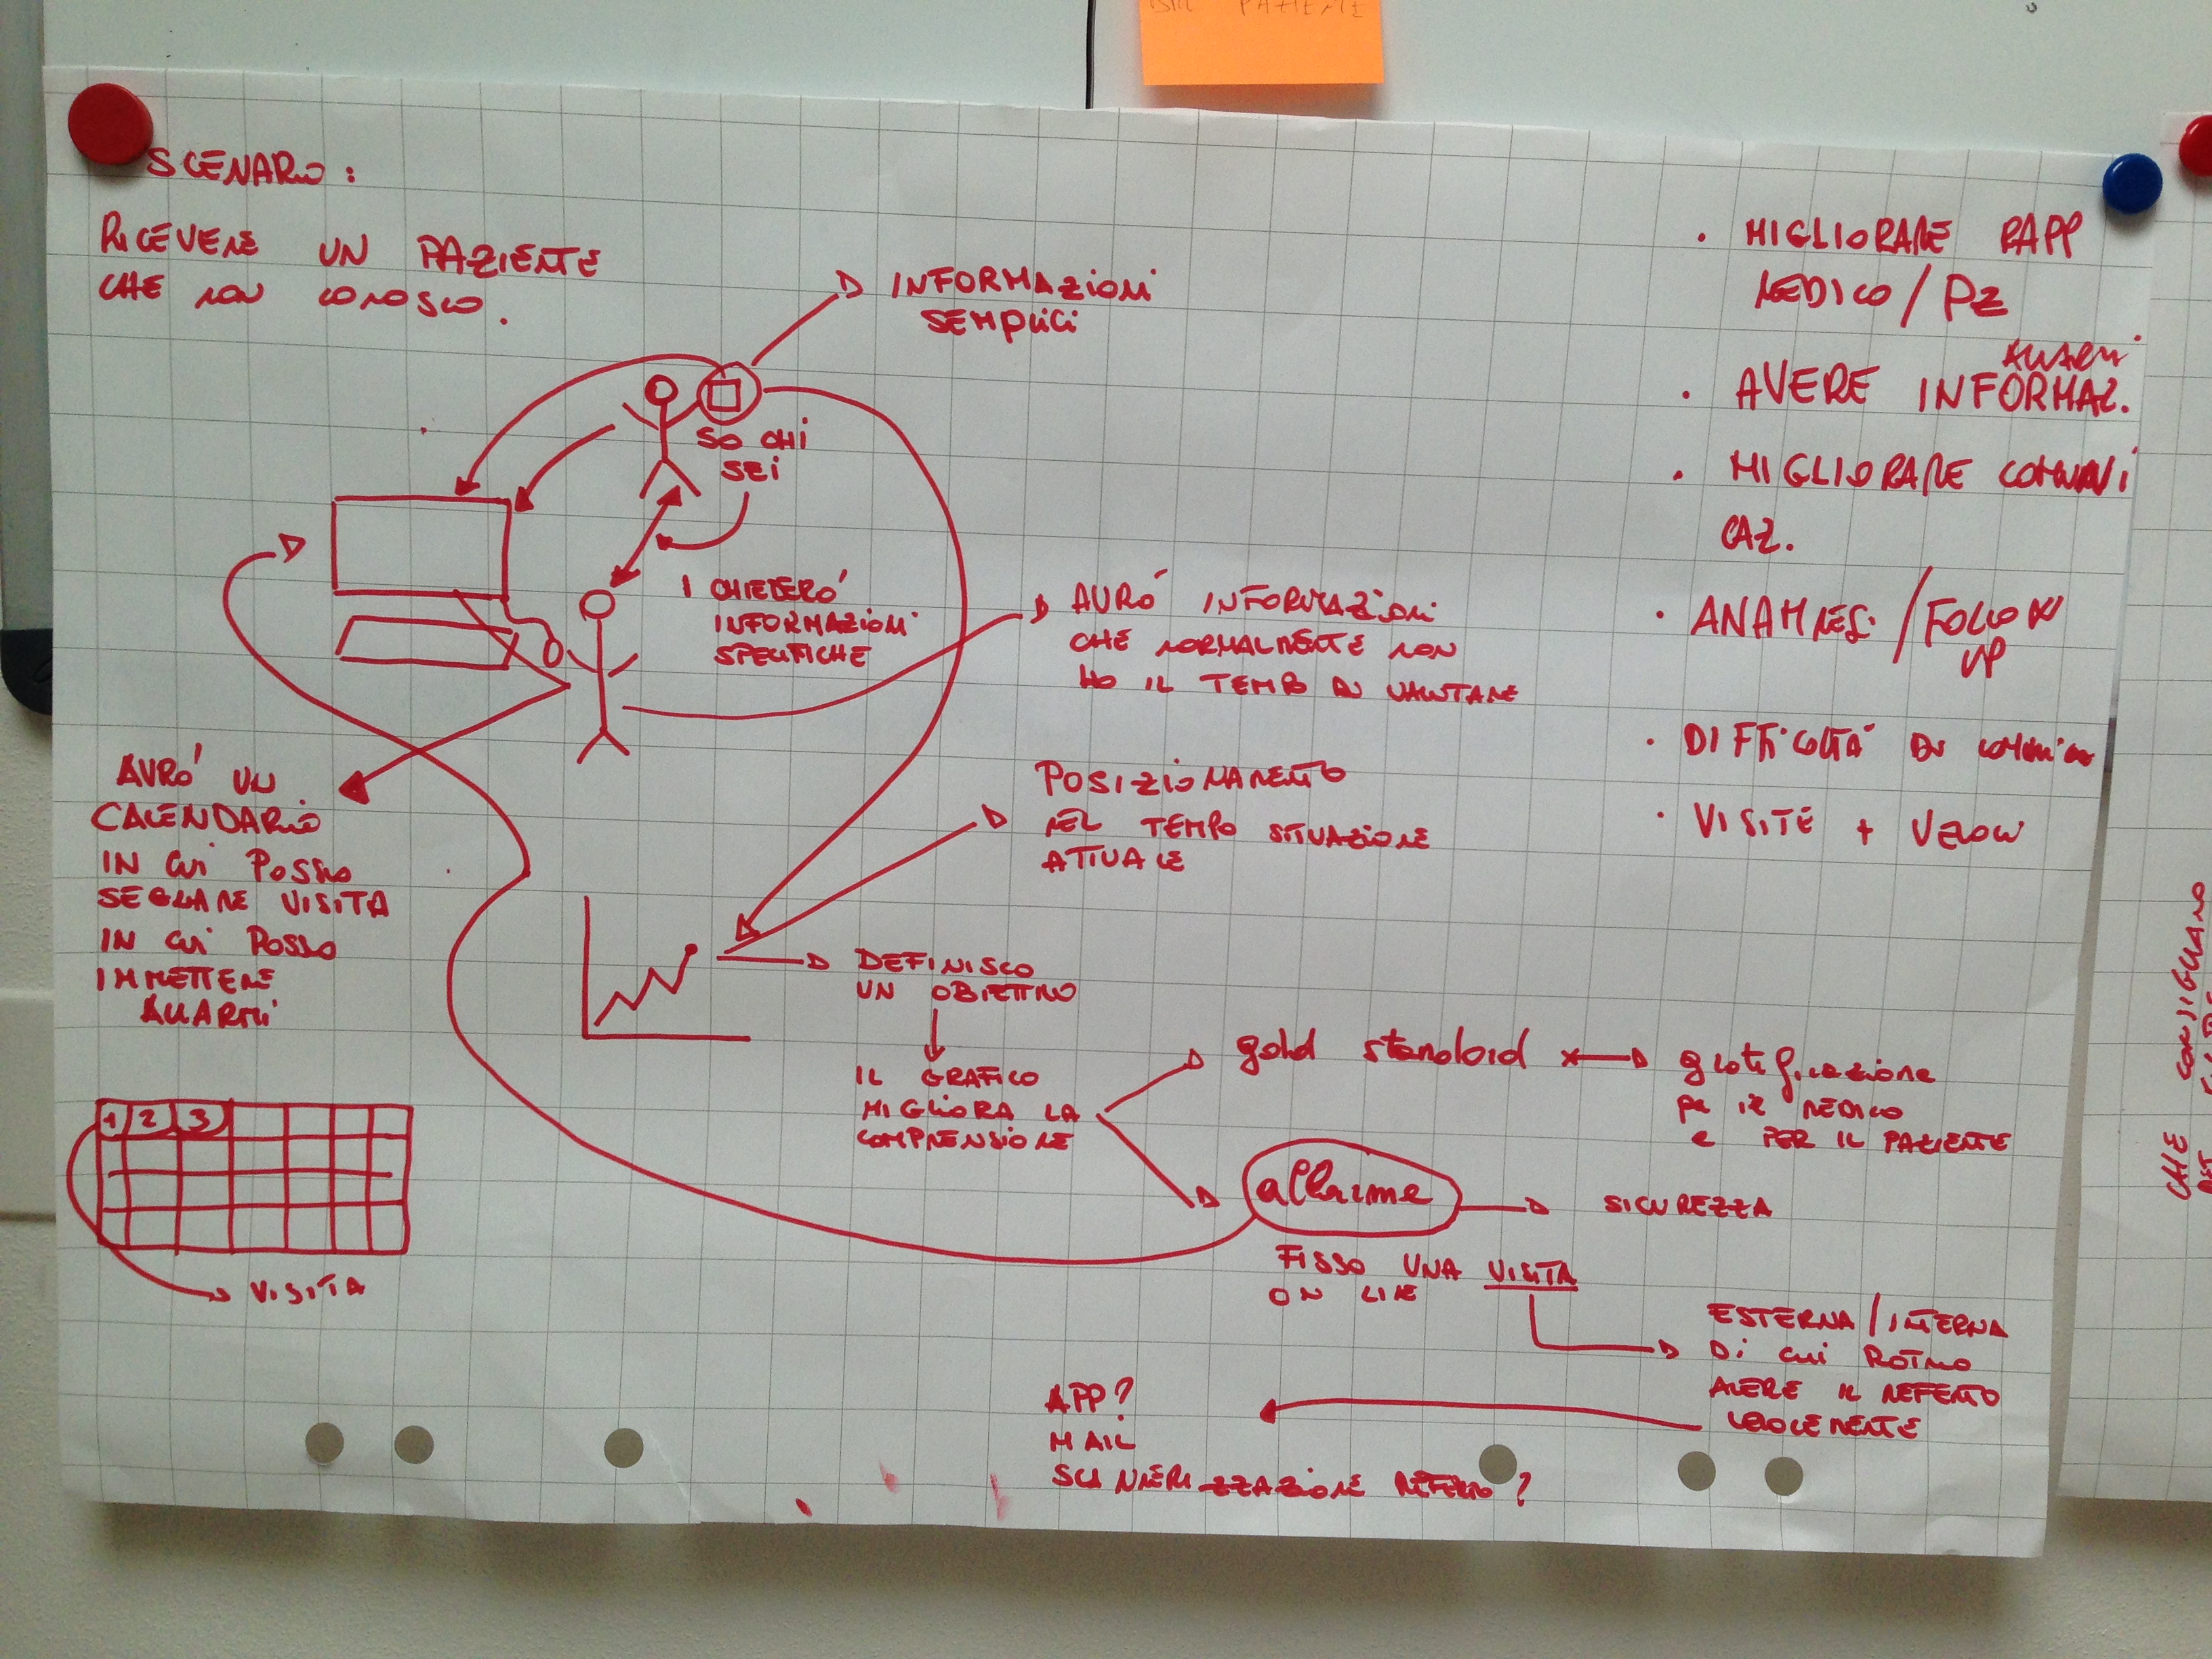 PAZIENTE
SCENARIO:
RICEVERE UN PAZIENTE
CHE NON CONOSCO.
INFORMAZIONI
SEMPLICI
SO CHI
SEI
CHIEDERÓ
INFORMAZIONI
SPECIFICHE
AVRÓ INFORMAZIONI
CHE NORMALMENTE NON
HO IL TEMPO DI VALUTARE
AVRÓ UN
CALENDARIO
IN CUI POSSO
SEGNARE VISITA
IN CUI POSSO
IMMETTERE
ALLARMI
1 2 3
VISITA
POSIZIONAMENTO
NEL TEMPO SITUAZIONE
ATTUALE
DEFINISCO
UN OBIETTIVO
IL GRAFICO
MIGLIORA LA
COMPRENSIONE
gold standard
gratificazione
per il MEDICO
e PER IL PAZIENTE
allarme
SICUREZZA
FISSO UNA VISITA
ON LINE
ESTERNA/INTERNA
DI CUI POTRÓ
AVERE IL REFERTO
VELOCEMENTE
APP?
MAIL
REFERTO?
• MIGLIORARE RAPP
MEDICO/PZ
ALLARMI
• AVERE INFORMAZ.
• MIGLIORARE COMUNI
CAZ.
• ANAMNESI/FOLLOW
UP
• DIFFICOLTÁ DI
• VISITE + VELOCI
CHE CONSIGLIANO